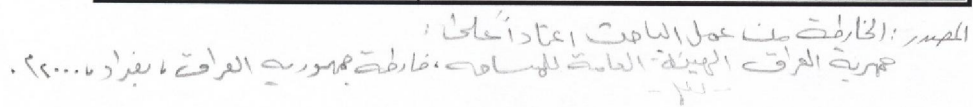 المصدر: الخارطة من عمل الباحث اعتماداً على:
جمهرية العراق الهيئة العامة للمساحه، خارطة جمهوريه العراق، بغداد، ٢٠٠٠م.